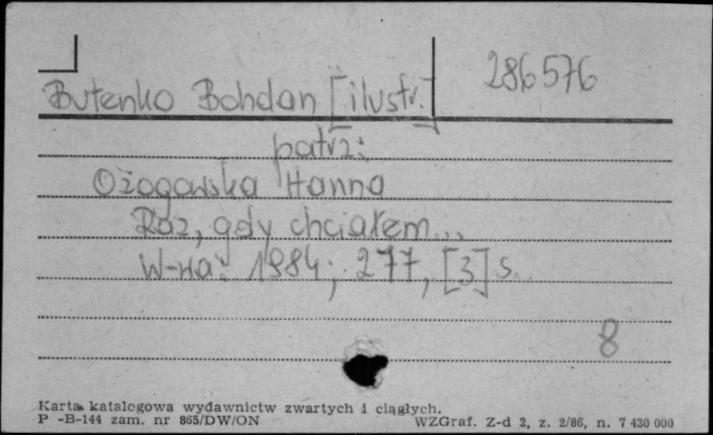 286576
Butenko Bohdan [ilustr.]
patrz:
Ożogowska Hanna
Raz, gdy chciałem...
W-wa: 1984; 277, [3] s.
8
Karta katalogowa wydawnictw zwartych i ciągłych.
P -B-144 zam. nr 865/DW/ON WZGraf. Z-d 2, z. 2/86, n. 7 430 000